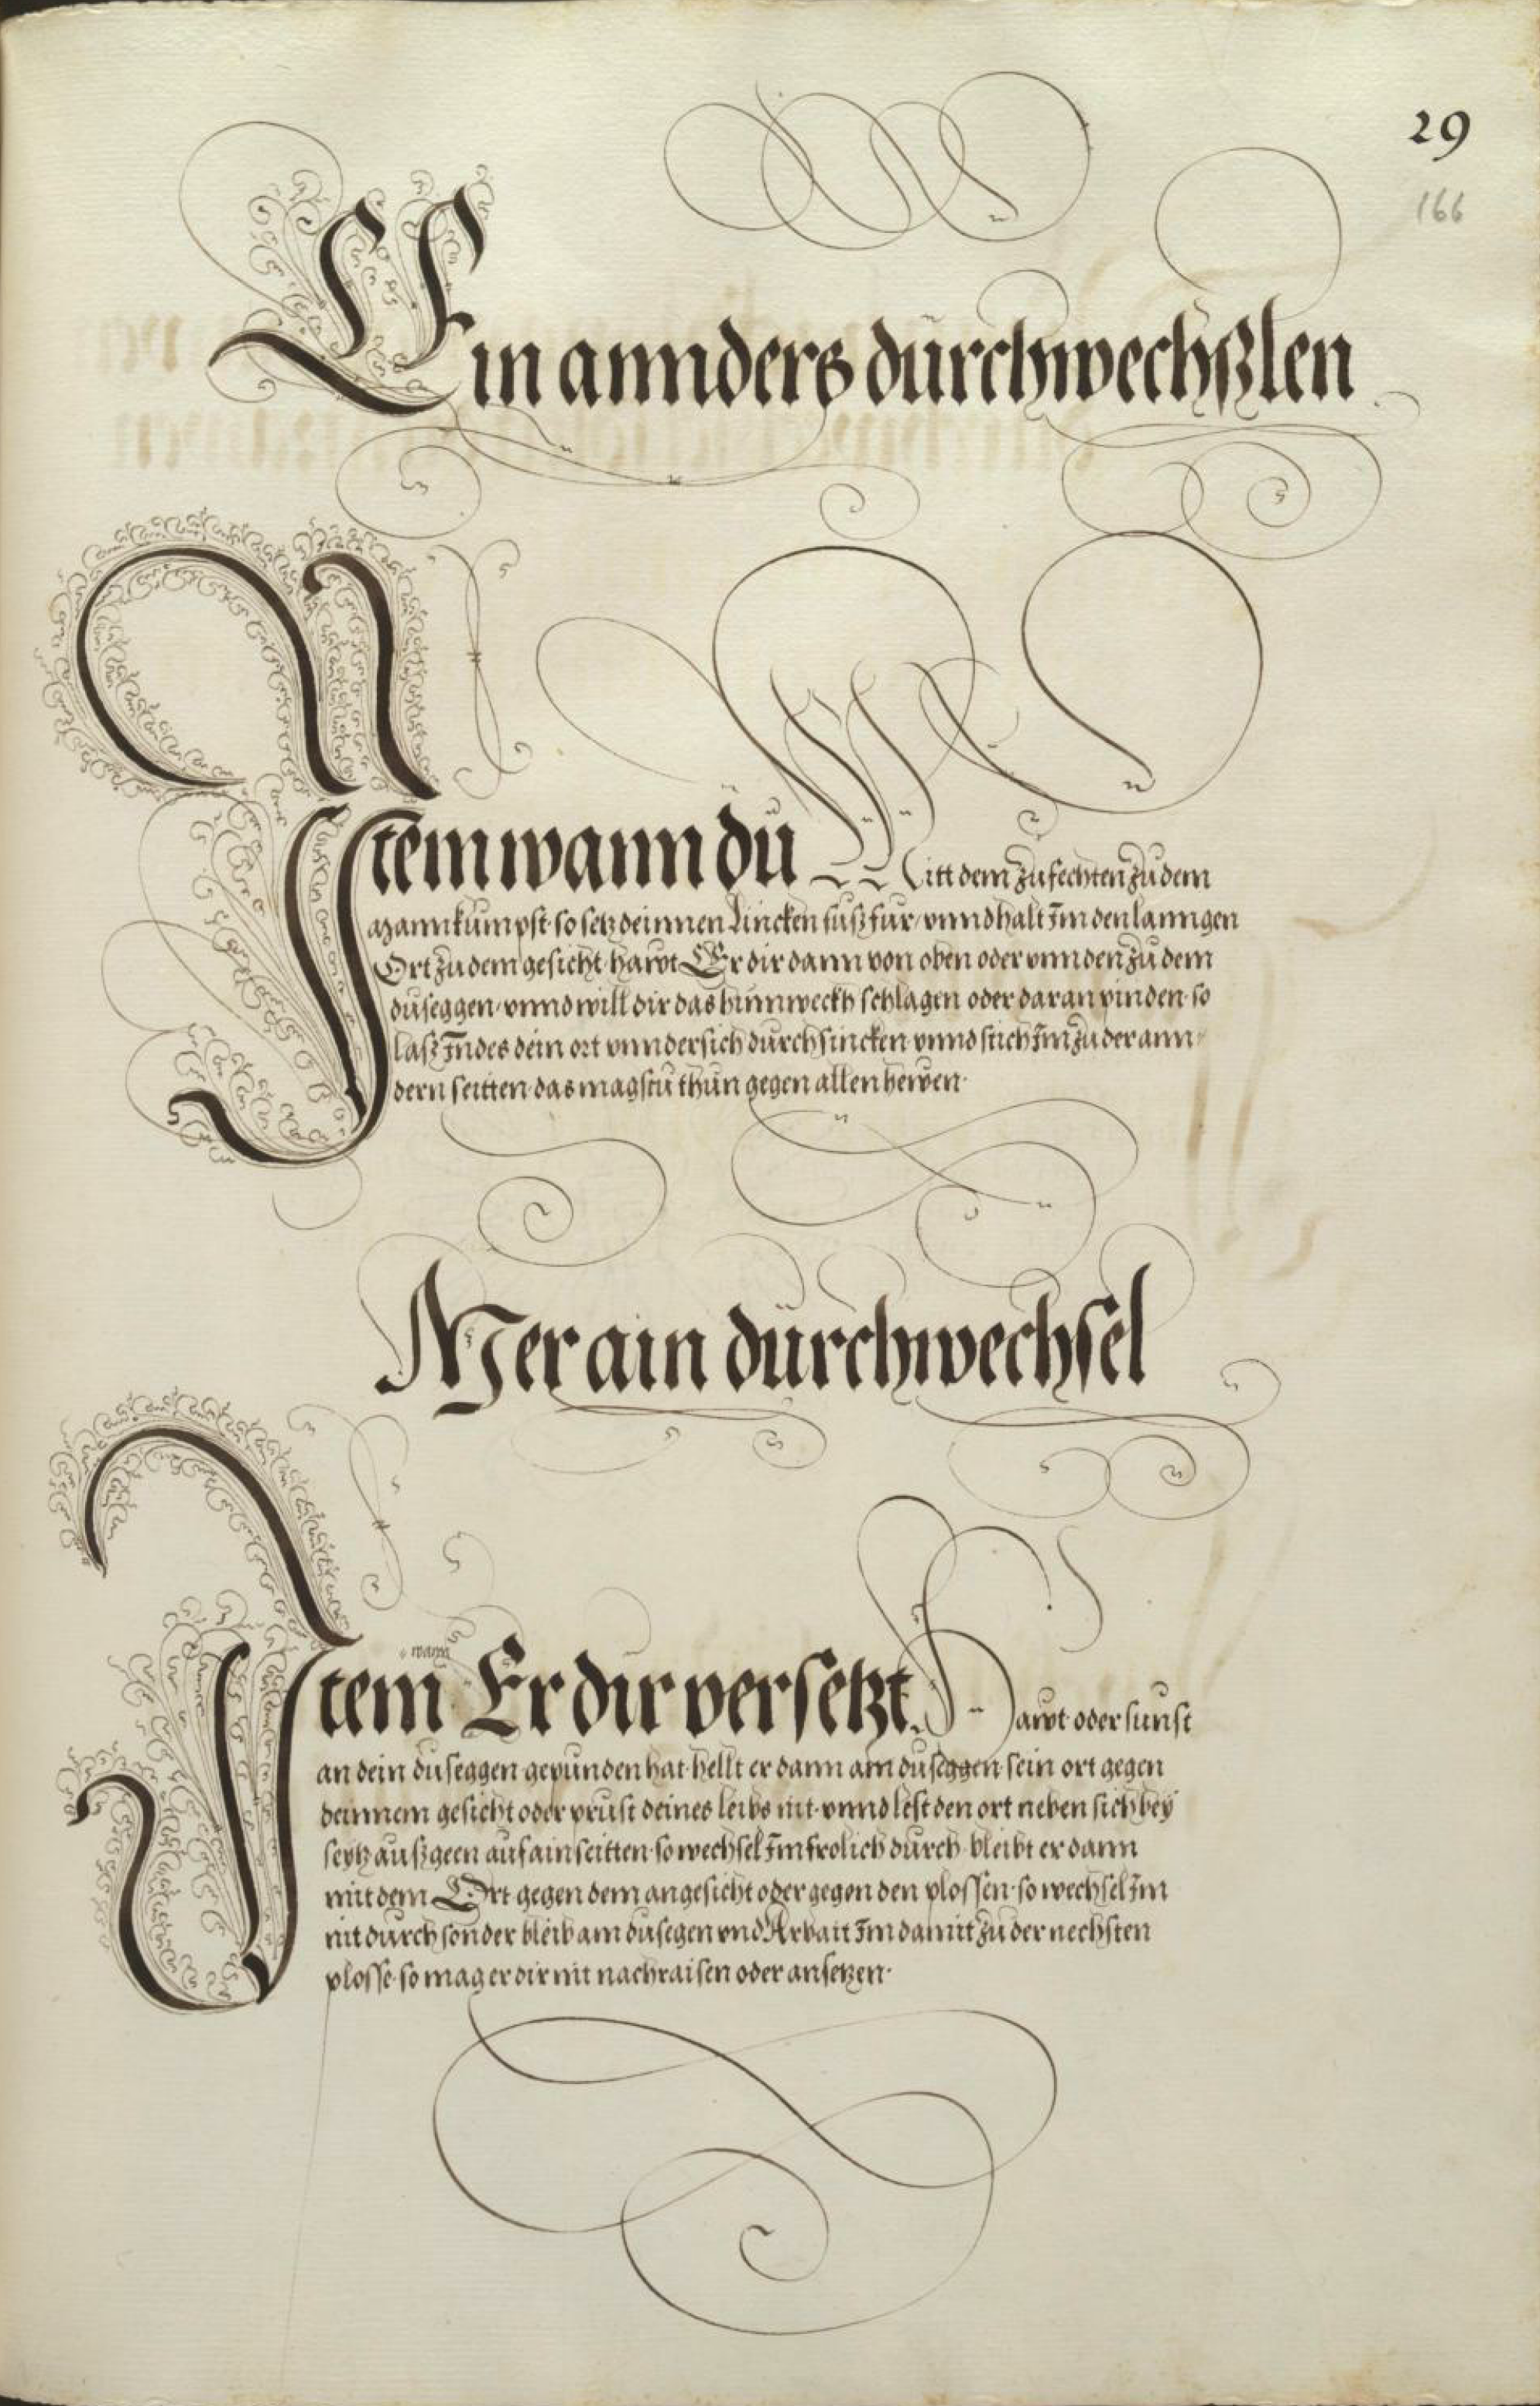 29
166
Ein annders durchwechßlen
Item wann du Mitt dem zufechten zu dem
Mann kumpst · so setz deinnen Lincken fuß für / vnnd halt Im den lanngen
Ort zu dem gesicht · hawt Er dir dann von oben oder vnnden zu dem
duseggen · vnnd will dir das hinnweckh schlagen oder daran pinden · so
laß Indes dein ort vnndersich durchsincken vnnd stich Im zu der ann⸗
dern seitten · das magstu thun gegen allen hewen ·
Mer ain durchwechsel
wann
Item Er dir versetzt hawt oder sunst
an dein duseggen gepunden hat · hellt er dann am duseggen sein ort gegen
deinnem gesicht oder prust deines leibs nit · vnnd lest den ort neben sich bey
seytz außgeen auf ain seitten · so wechsel Im frolich durch · bleibt er dann
mit dem Ort gegen dem angesicht oder gegen den plossen · so wechsel Im
nit durch sonder bleib am dusegen vnd Arbait Im damit zu der nechsten
plosse · so mag er dir nit nachraisen oder ansetzen ·